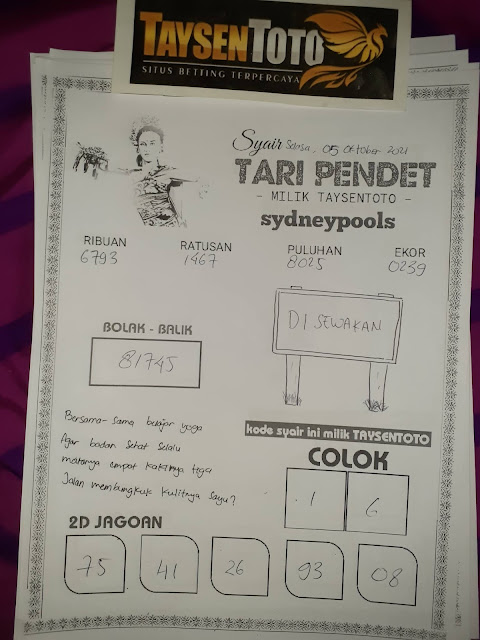 TAYSENTOTO
SITUS BETTING TERPERCAYA
Syair Selasa, 05 Oktober 2021
TARI PENDET
- MILIK TAYSENTOTO -
sydneypools
RIBUAN RATUSAN PULUHAN EKOR
6793 1467 8025 0239
DISEWAKAN
BOLAK - BALIK
81745
Bersama-sama belajar yoga
Agar badan sehat selalu
matanya empat kakinya tiga
Jalan membungkuk kulitnya sayu?
kode syair ini milik TAYSENTOTO
COLOK
1 6
2D JAGOAN
75 41 26 93 08